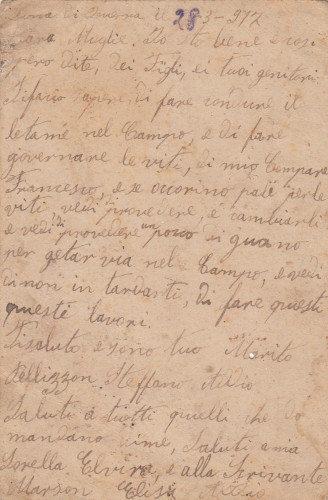 Zona di Guerra il 28-3-917
Cara Moglie. Io sto bene e cosi
spero di te, dei Figli, ei tuoi genitori
Tifacio sapere di fare condure il
letame nel Campo, e di fare
governare le viti, di mio Compare
Francesco, e se occorino pale perle
viti vedi di provedere, e cambiarli
e vedi di provedere un poco di guano
per getar via nel Campo, e vedi
di non in tarvanti, di fare questi
questi lavori.
Tisaluto e sono tuo Marito
Pellizzon Steffano Adio
Saluti á tiotti quelli che do
mandano dime, Saluti amia
Sorella Elvira, e alla Scrivante
Marson Elisa